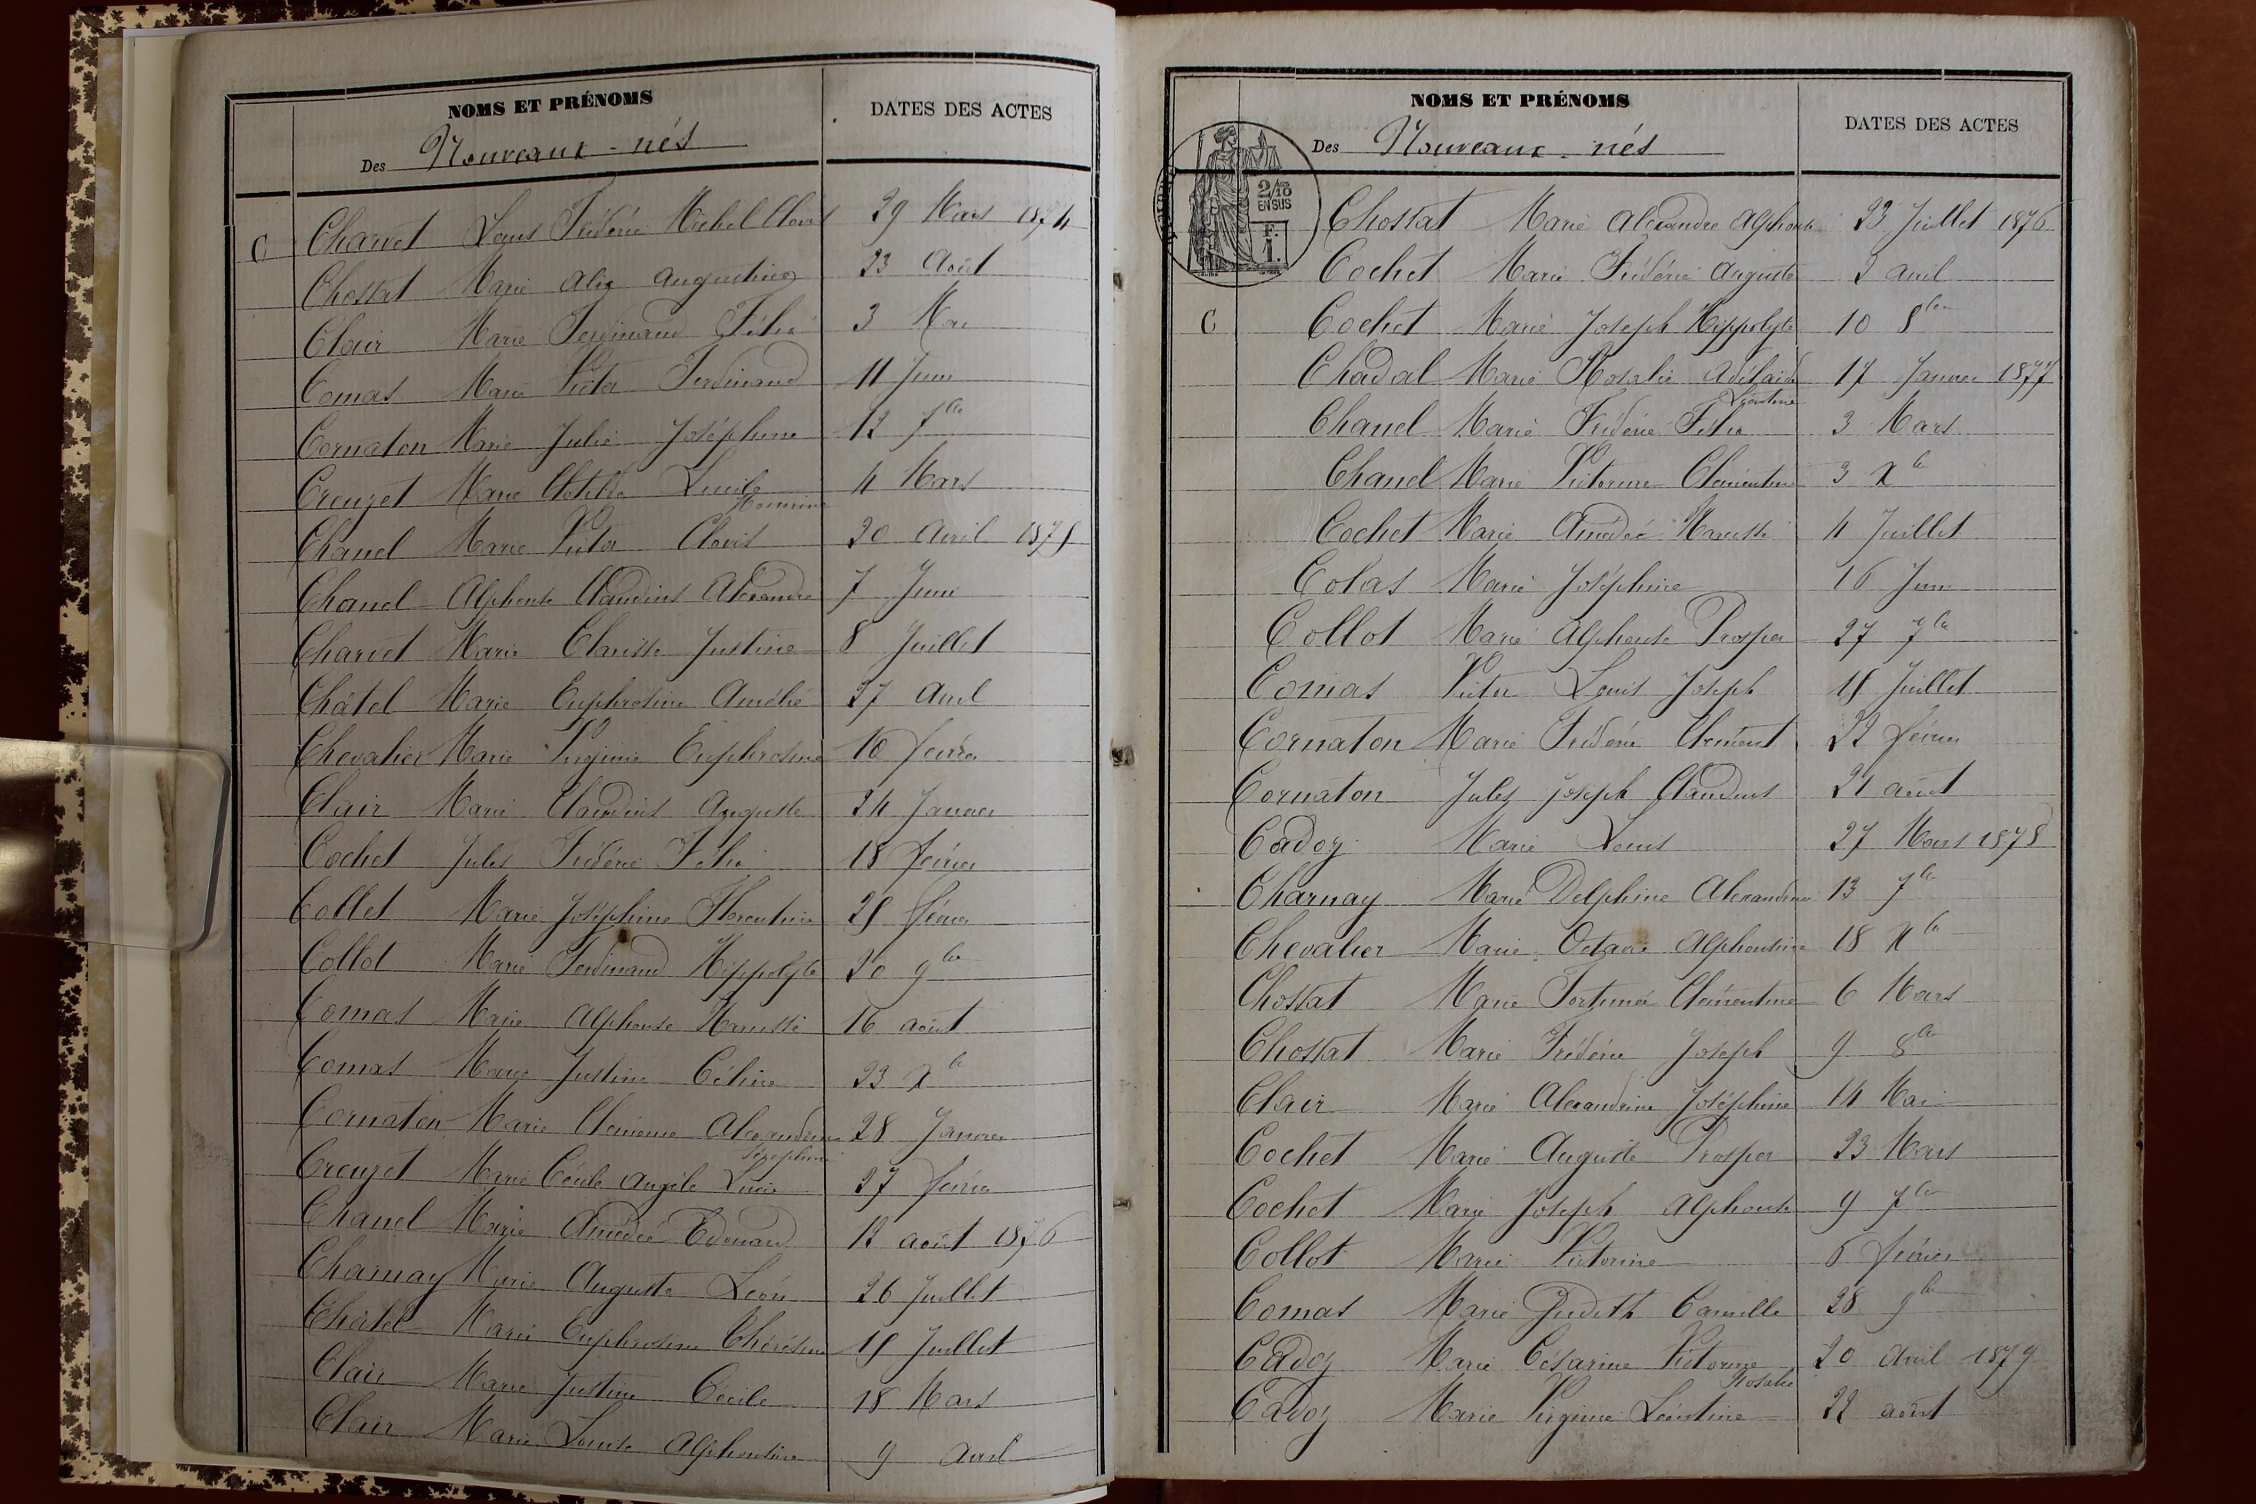 NOMS ET PRÉNOMS
DATES DES ACTES
Des Nouveaux-nés
C Charvet Louis Frédéric Michel Clovis 29 Mars 1874
Chossat Marie Alix Augustine 23 Août
Clair Marie Ferdinand Félix 3 Mai
Comas Marie Victor Ferdinand 11 Juin
Cornaton Marie Julie Joséphine 12 7bre
Creuzet Marie Clotilde Lucile 4 Mars
Honorine
Chanel Marie Victor Clovis 20 Avril 1875
Chanel Alphonse Claudius Alexandre 7 Juin
Charvet Marie Clarisse Justine 8 Juillet
Châtel Marie Euphrosine Amélie 27 Avril
Chevalier Marie Virginie Euphrosine 16 février
Clair Marie Claudius Auguste 24 Janvier
Cochet Jules Frédéric Félix 18 février
Collet Marie Joséphine Florentine 25 février
Collot Marie Ferdinand Hippolyte 20 9bre
Comas Marie Alphonse Narcisse 16 août
Comas Marie Justine Céline 23 Xbre
Cornaton Marie Clémence Alexandrine 28 Janvier
Joséphine
Creuzet Marie Cécile Angèle Lucie 27 février
Chanel Marie Amédée Edouard 12 août 1876
Charnay Marie Auguste Léon 26 Juillet
Châtel Marie Euphrosine Thérésine 15 Juillet
Clair Marie Justine Cécile 18 Mars
Clair Marie Louise Alphonsine 9 Avril
NOMS ET PRÉNOMS
DATES DES ACTES
Des Nouveaux-nés
2/10
EN SUS
F.
1.
Chossat Marie Alexandre Alphonse 23 Juillet 1876
Cochet Marie Frédéric Auguste 2 avril
C Cochet Marie Joseph Hippolyte 10 8bre
Chadal Marie Rosalie Adélaïde 17 Janvier 1877
Léontine
Chanel Marie Frédéric Félix 3 Mars
Chanel Marie Victorine Clémentine 3 Xbre
Cochet Marie Amédée Narcisse 4 Juillet
Colas Marie Joséphine 16 Juin
Collot Marie Alphonse Prosper 27 7bre
Comas Victor Louis Joseph 15 Juillet
Cornaton Marie Frédéric Clément 22 février
Cornaton Jules Joseph Claudius 21 août
Cadoz Marie Louis 27 Mars 1878
Charnay Marie Delphine Alexandrine 13 7bre
Chevalier Marie Octavie Alphonsine 18 Xbre
Chossat Marie Fortunée Clémentine 6 Mars
Chossat Marie Frédéric Joseph 9 8bre
Clair Marie Alexandrine Joséphine 14 Mai
Cochet Marie Auguste Prosper 23 Mars
Cochet Marie Joseph Alphonse 9 7bre
Collot Marie Victorine 6 février
Comas Marie Judith Camille 28 9bre
Cadoz Marie Césarine Victorine 20 Avril 1879
Rosalie
Cadoz Marie Virginie Léontine 22 août